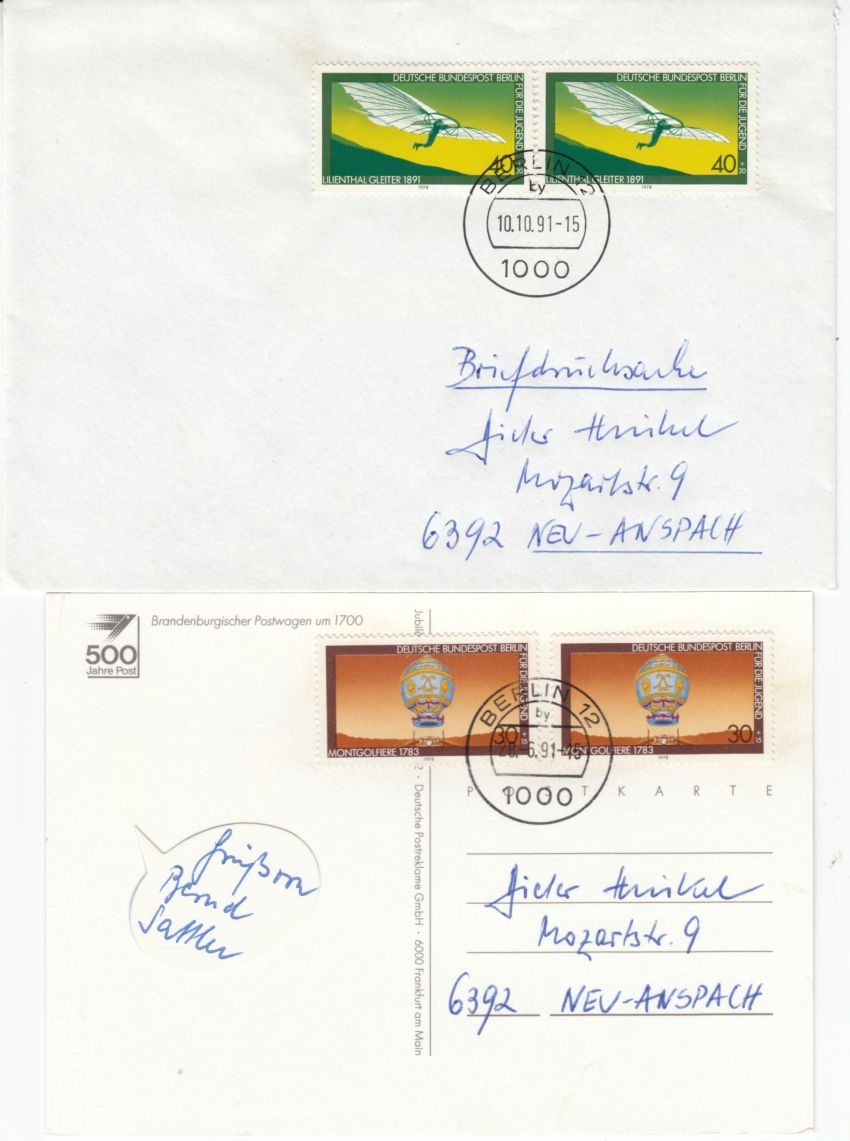 DEUTSCHE BUNDESPOST BERLIN
FÜR DIE JUGEND
40
+
20
LILIENTHAL GLEITER 1891
1978
DEUTSCHE BUNDESPOST BERLIN
FÜR DIE JUGEND
40
+
20
LILIENTHAL GLEITER 1891
1978
BERLIN 12
by
10.10.91-15
1000
Briefdrucksache
Dieter Heinkel
Mozartstr. 9
6392 NEU-ANSPACH
500
Jahre Post
Brandenburgischer Postwagen um 1700
DEUTSCHE BUNDESPOST BERLIN
FÜR DIE JUGEND
30
+
15
MONTGOLFIERE 1783
1978
DEUTSCHE BUNDESPOST BERLIN
FÜR DIE JUGEND
30
+
15
MONTGOLFIERE 1783
1978
BERLIN 12
by
28.-6.91-15
1000
POSTKARTE
· Deutsche Postreklame GmbH · 6000 Frankfurt am Main
Gruß von
Bernd
Sattler
Dieter Heinkel
Mozartstr. 9
6392 NEU-ANSPACH